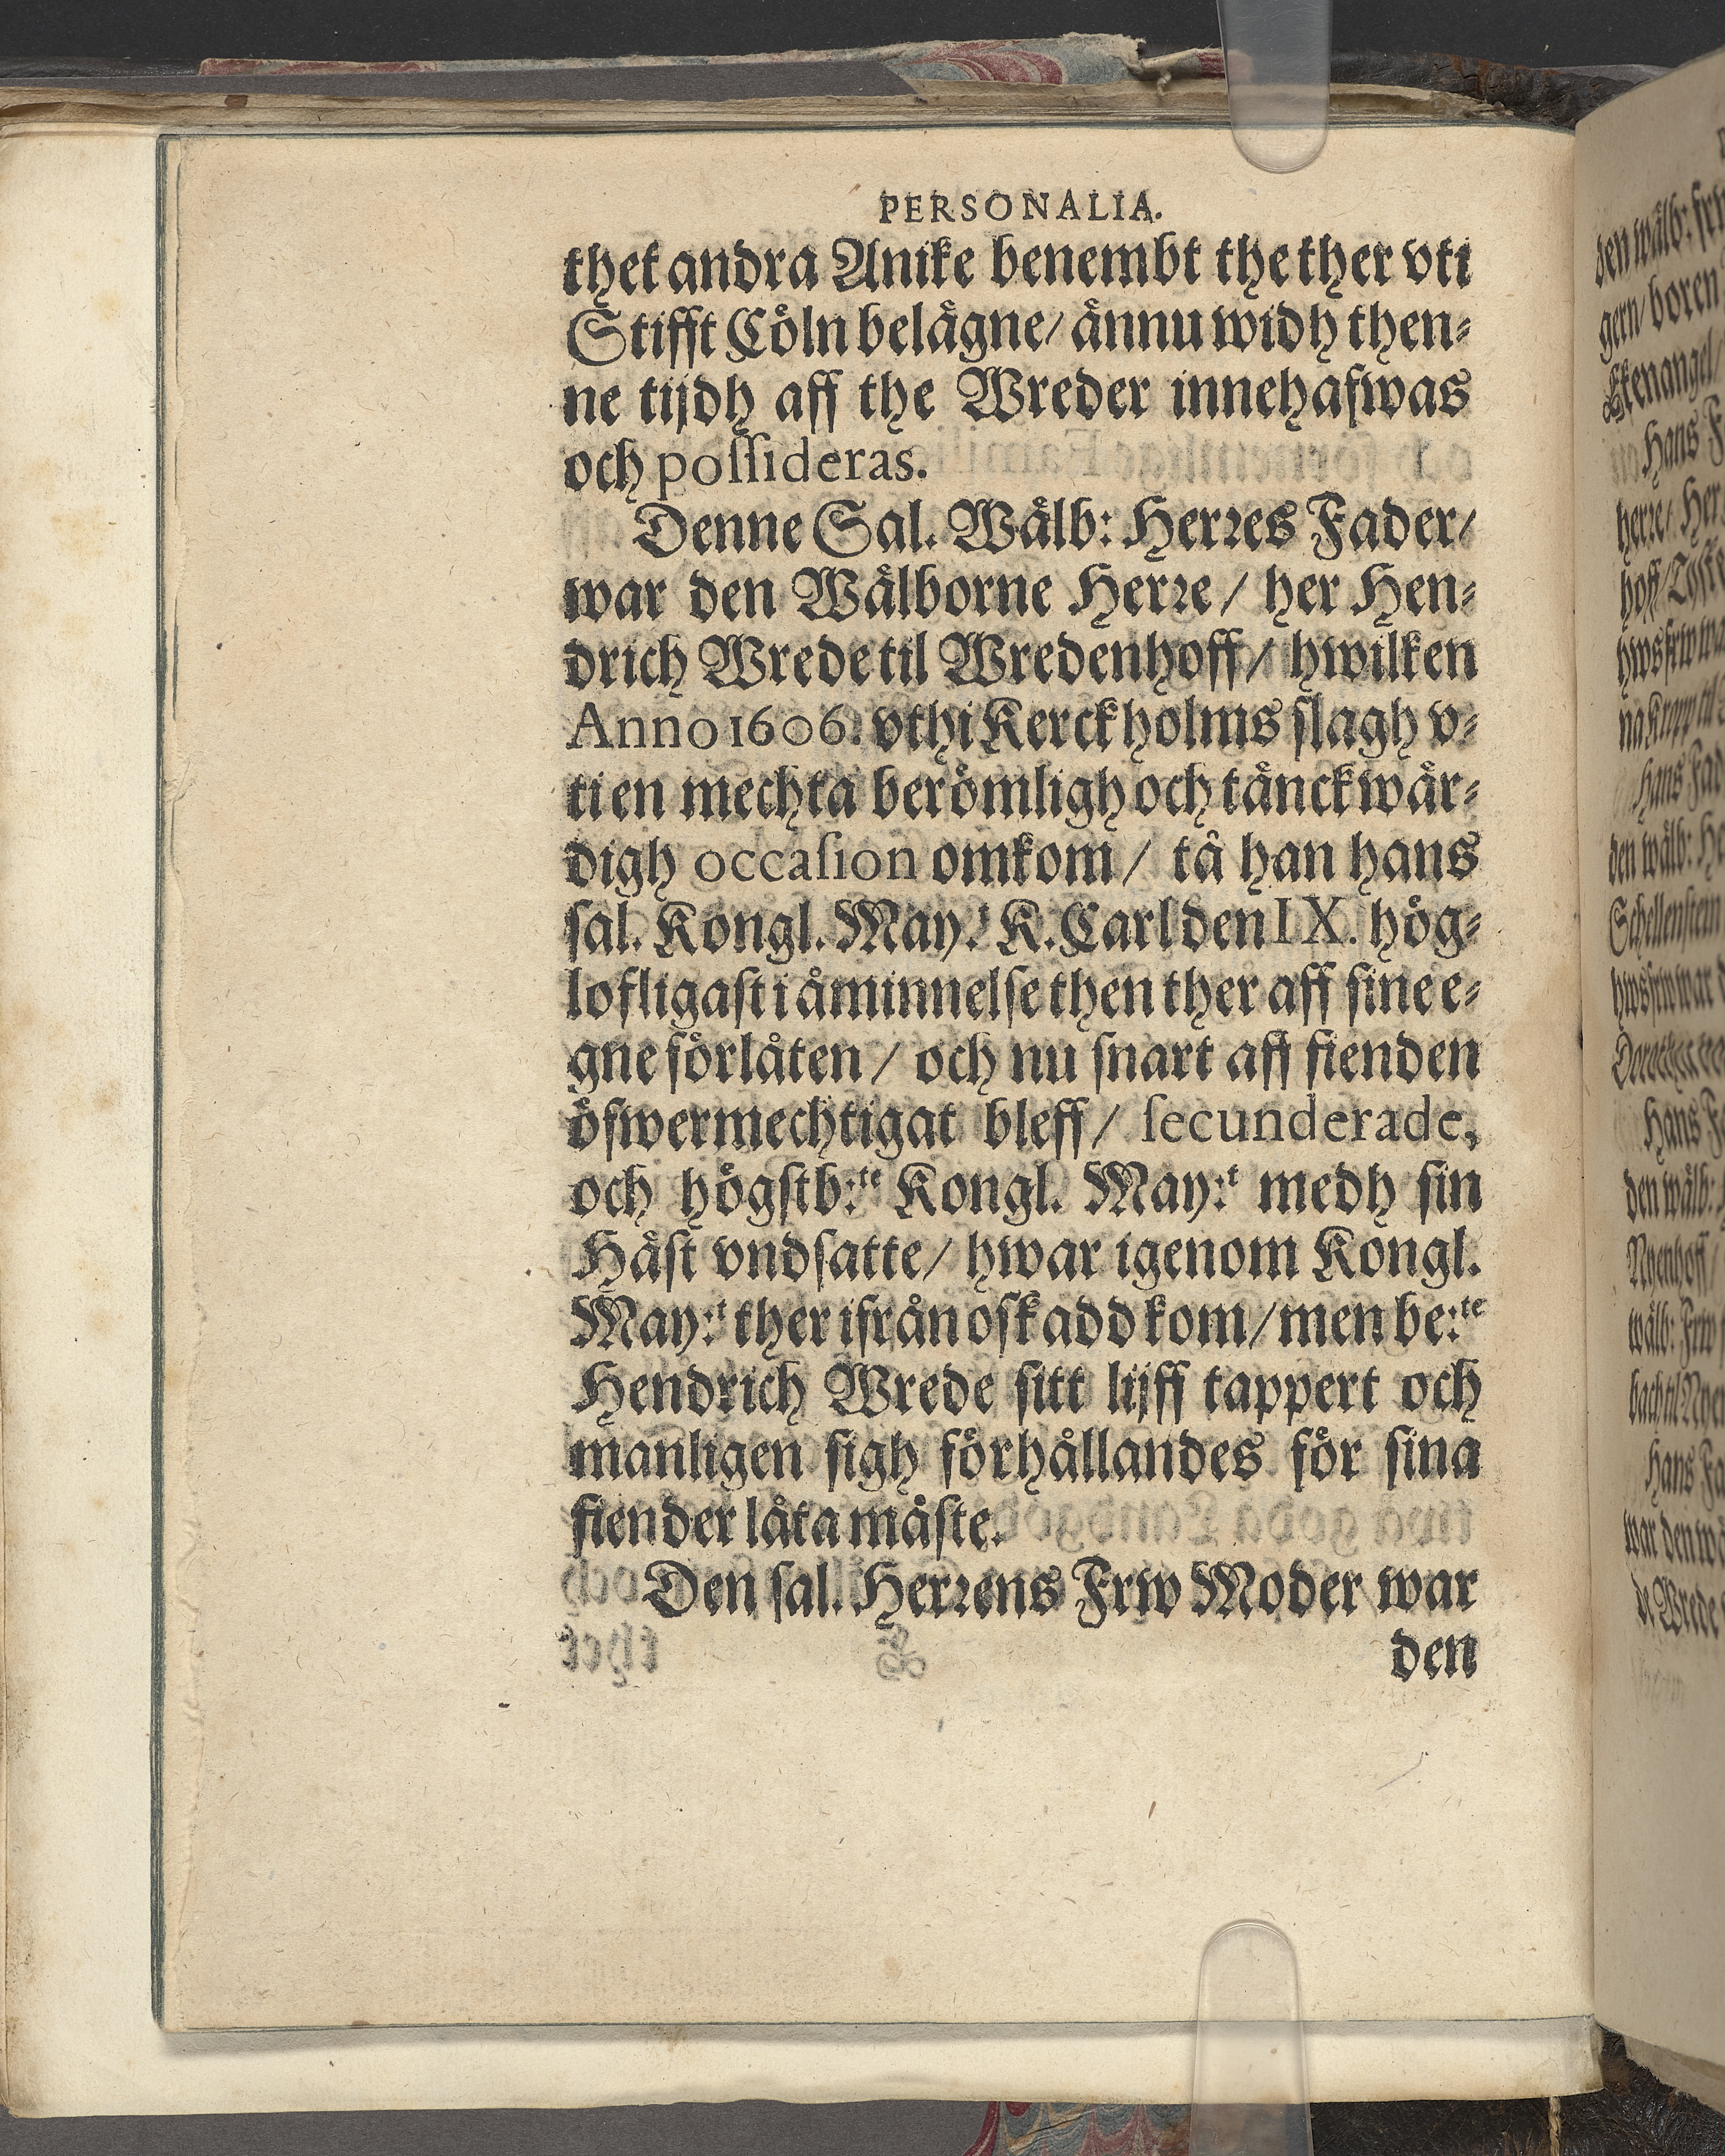 PERSONALIA.
thet andra Anike benembt the ther vti
Stifft Cöln belägne/ ännu widh then⸗
ne tijdh aff the Wreder innehafwas
och poſſideras.
Denne Sal. Wälb: Herꝛes Fader/
war den Wälborne Herꝛe/ her Hen⸗
drich Wrede til Wredenhoff/ hwilken
Anno 1606. vthi Kerckholms ſlagh v⸗
ti en mechta berömligh och tänckwär⸗
digh occaſion omkom/ tå han hans
ſal. Kongl. May:ᵗ K. Carl den IX. hög⸗
lofligaſt i åminnelſe then ther aff ſine e⸗
gne förlåten/ och nu ſnart aff fienden
öfwermechtigat bleff/ ſecunderade,
och högſtb:ᵗᵉ Kongl. May:ᵗ medh ſin
Häſt vndſatte/ hwar igenom Kongl.
May:ᵗ ther ifrån oſkadd kom/ men be:ᵗᵉ
Hendrich Wrede ſitt lijff tappert och
manligen ſigh förhållandes för ſina
fiender låta måſte.
Den ſal. Herꝛens Frw Moder war
den